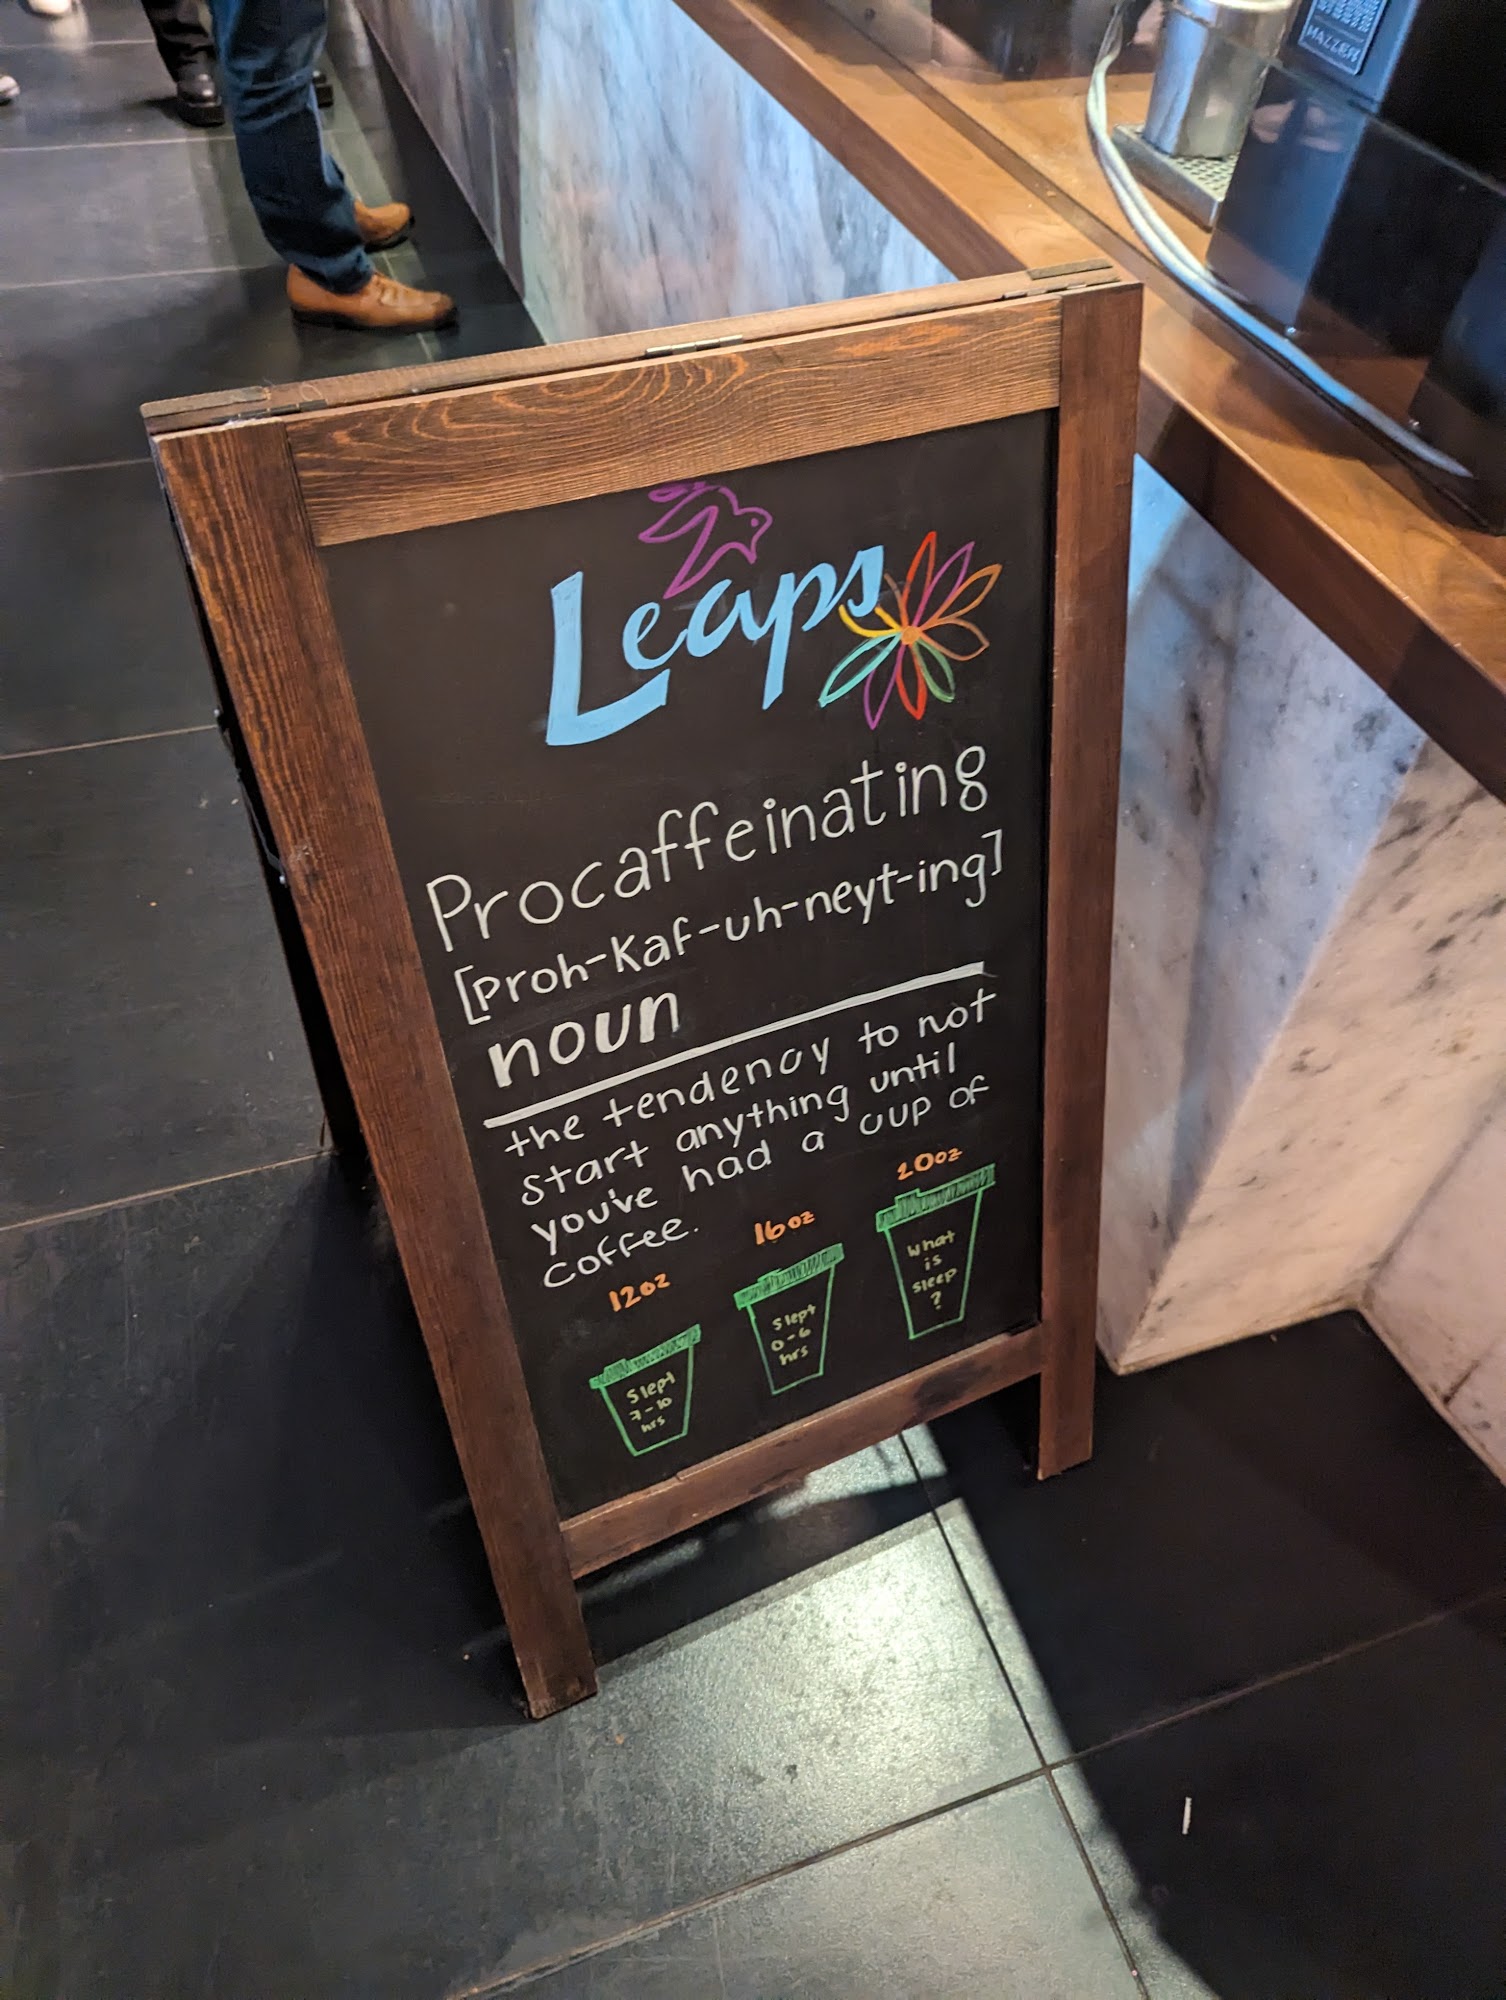 MAZZER
Leaps
Procaffeinating
[proh-kaf-uh-neyt-ing]
noun
the tendency to not
start anything until
you've had a cup of
coffee.
12oz
16oz
20oz
Slept
7-10
hrs
Slept
0-6
hrs
What
is
sleep
?